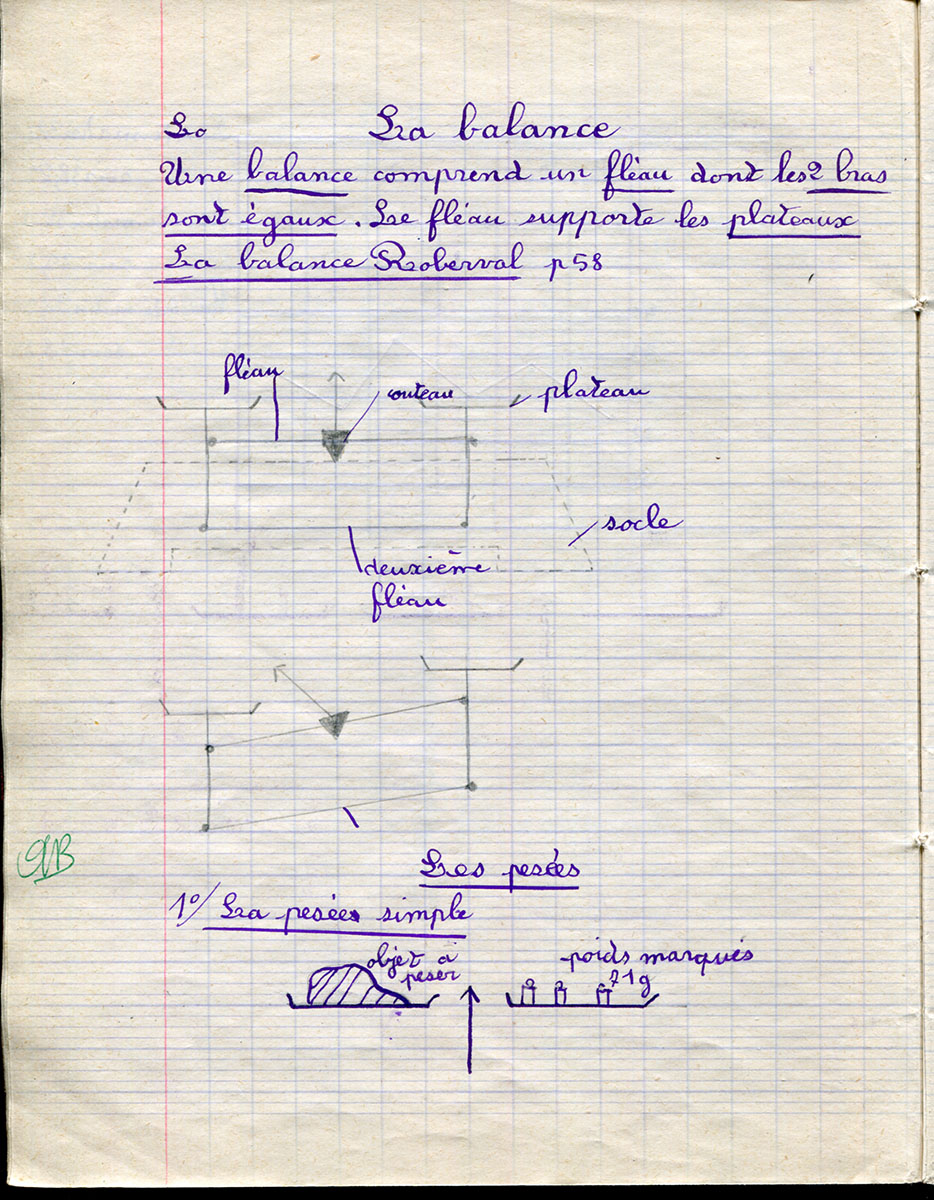 La balance
Une balance comprend un fléau dont les 2 bras
sont égaux. Le fléau supporte les plateaux
La balance Roberval p 58
fléau
couteau
plateau
socle
deuxième
fléau
Les pesées
1°/ La pesée simple
objet à
peser
poids marqués